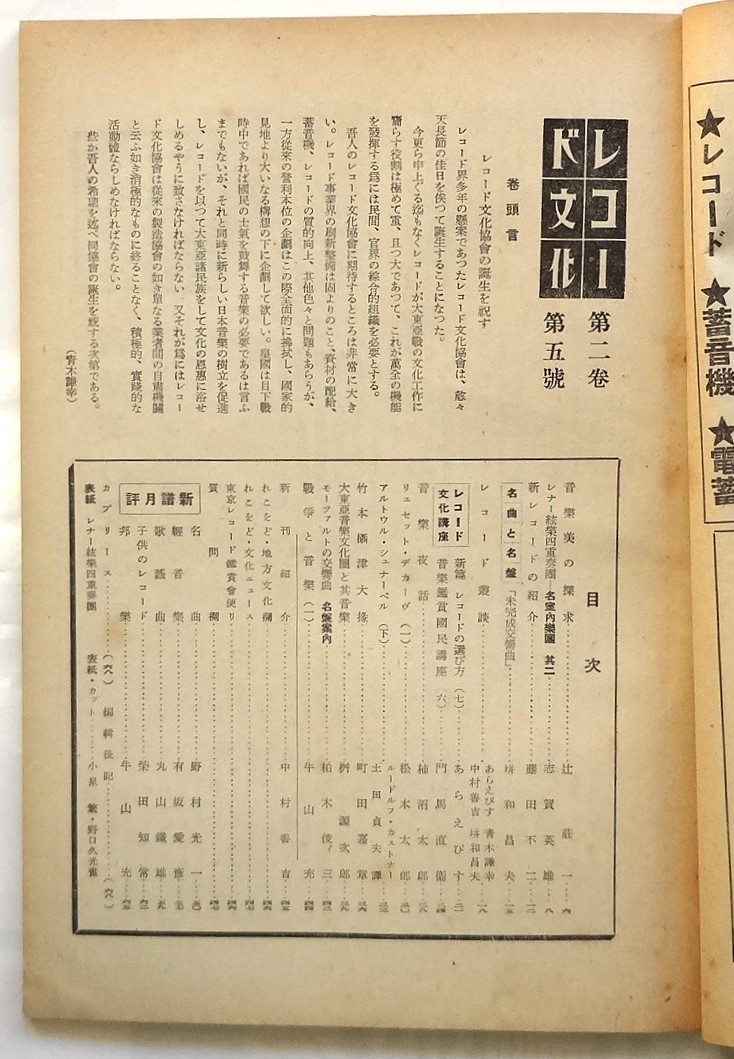 レコード文化
第二卷
第五號
卷頭言
レコード文化協會の誕生を祝す
レコード界多年の懸案であつたレコード文化協會は、愈々
天長節の佳日を俟つて誕生することになつた。
今更ら申上ぐる迄もなくレコードが大東亞戰の文化工作に
齎らす役割は極めて重、且つ大であつて、これが萬全の機能
を發揮する爲には民間、官界の綜合的組織を必要とする。
吾人のレコード文化協會に期待するところは非常に大き
い。レコード事業界の刷新整備は固よりのこと、資材の配給、
蓄音磯、レコードの質的向上、其他色々と問題もあらうが、
一方從來の營利本位の企劃はこの際全面的に拂拭し、國家的
見地より大いなる構想の下に企劃して欲しい。皇國は目下戰
時中であれば國民の士氣を鼓舞する音樂の必要であるは言ふ
までもないが、それと同時に新らしい日本音樂の樹立を促進
し、レコードを以つて大東亞諸民族をして文化の恩惠に浴せ
しめるやうに致さなければならない。又それが爲にはレコー
ド文化協會は從來の製造協會の如き單なる業者間の自肅機關
と云ふ如き消極的なものに終ることなく、積極的、實踐的な
活動體ならしめなければならない。
些か吾人の希望を述べ同協會の誕生を祝する次第である。
(靑木謙幸)
目次
音樂美の探求 辻莊一 六
レナー絃樂四重奏團―名室內樂團 其二 志賀英雄 八
新レコードの紹介 藤田不二 一二
名曲と名盤 「未完成交響曲」 垪和昌夫 一五
レコード叢談 あらえびす 靑木謙幸 中村善吉 垪和昌夫 一八
レコード文化講座
新篇 レコードの選び方 (七) あらえびす 二一
音樂鑑賞國民講座 (六) 門馬直衞 二四
音樂夜話 柿沼太郎 二八
リュセット・デカーヴ (一) 松本太郎 三〇
アルトウル・シュナーベル (下) ルードルフ・カストナー 土田貞夫譯 三三
竹本攝津大掾 町田嘉章 三六
大東亞音樂文化圈と其音樂 桝源次郎 三九
モーツァルトの交響曲 名盤案內 柏木俊三 四二
戰爭と音樂 (一) 牛山充 四四
新刊紹介 中村善吉 四五
れこをど・地方文化欄 四六
れこをど・文化ニュース 四七
東京レコード鑑賞會便り 四六
質問欄 四八
新譜月評
名曲 野村光一 五〇
輕音樂 有坂愛彥 五七
歌謠曲 丸山鐵雄 五九
子供のレコード 柴田知常 六二
邦樂 牛山充 六五
カプリース (六八)
編輯後記 (六八)
表紙 レナー絃樂四重奏團
表紙・カット 小泉繁・野口久光
★レコード ★蓄音機 ★電蓄